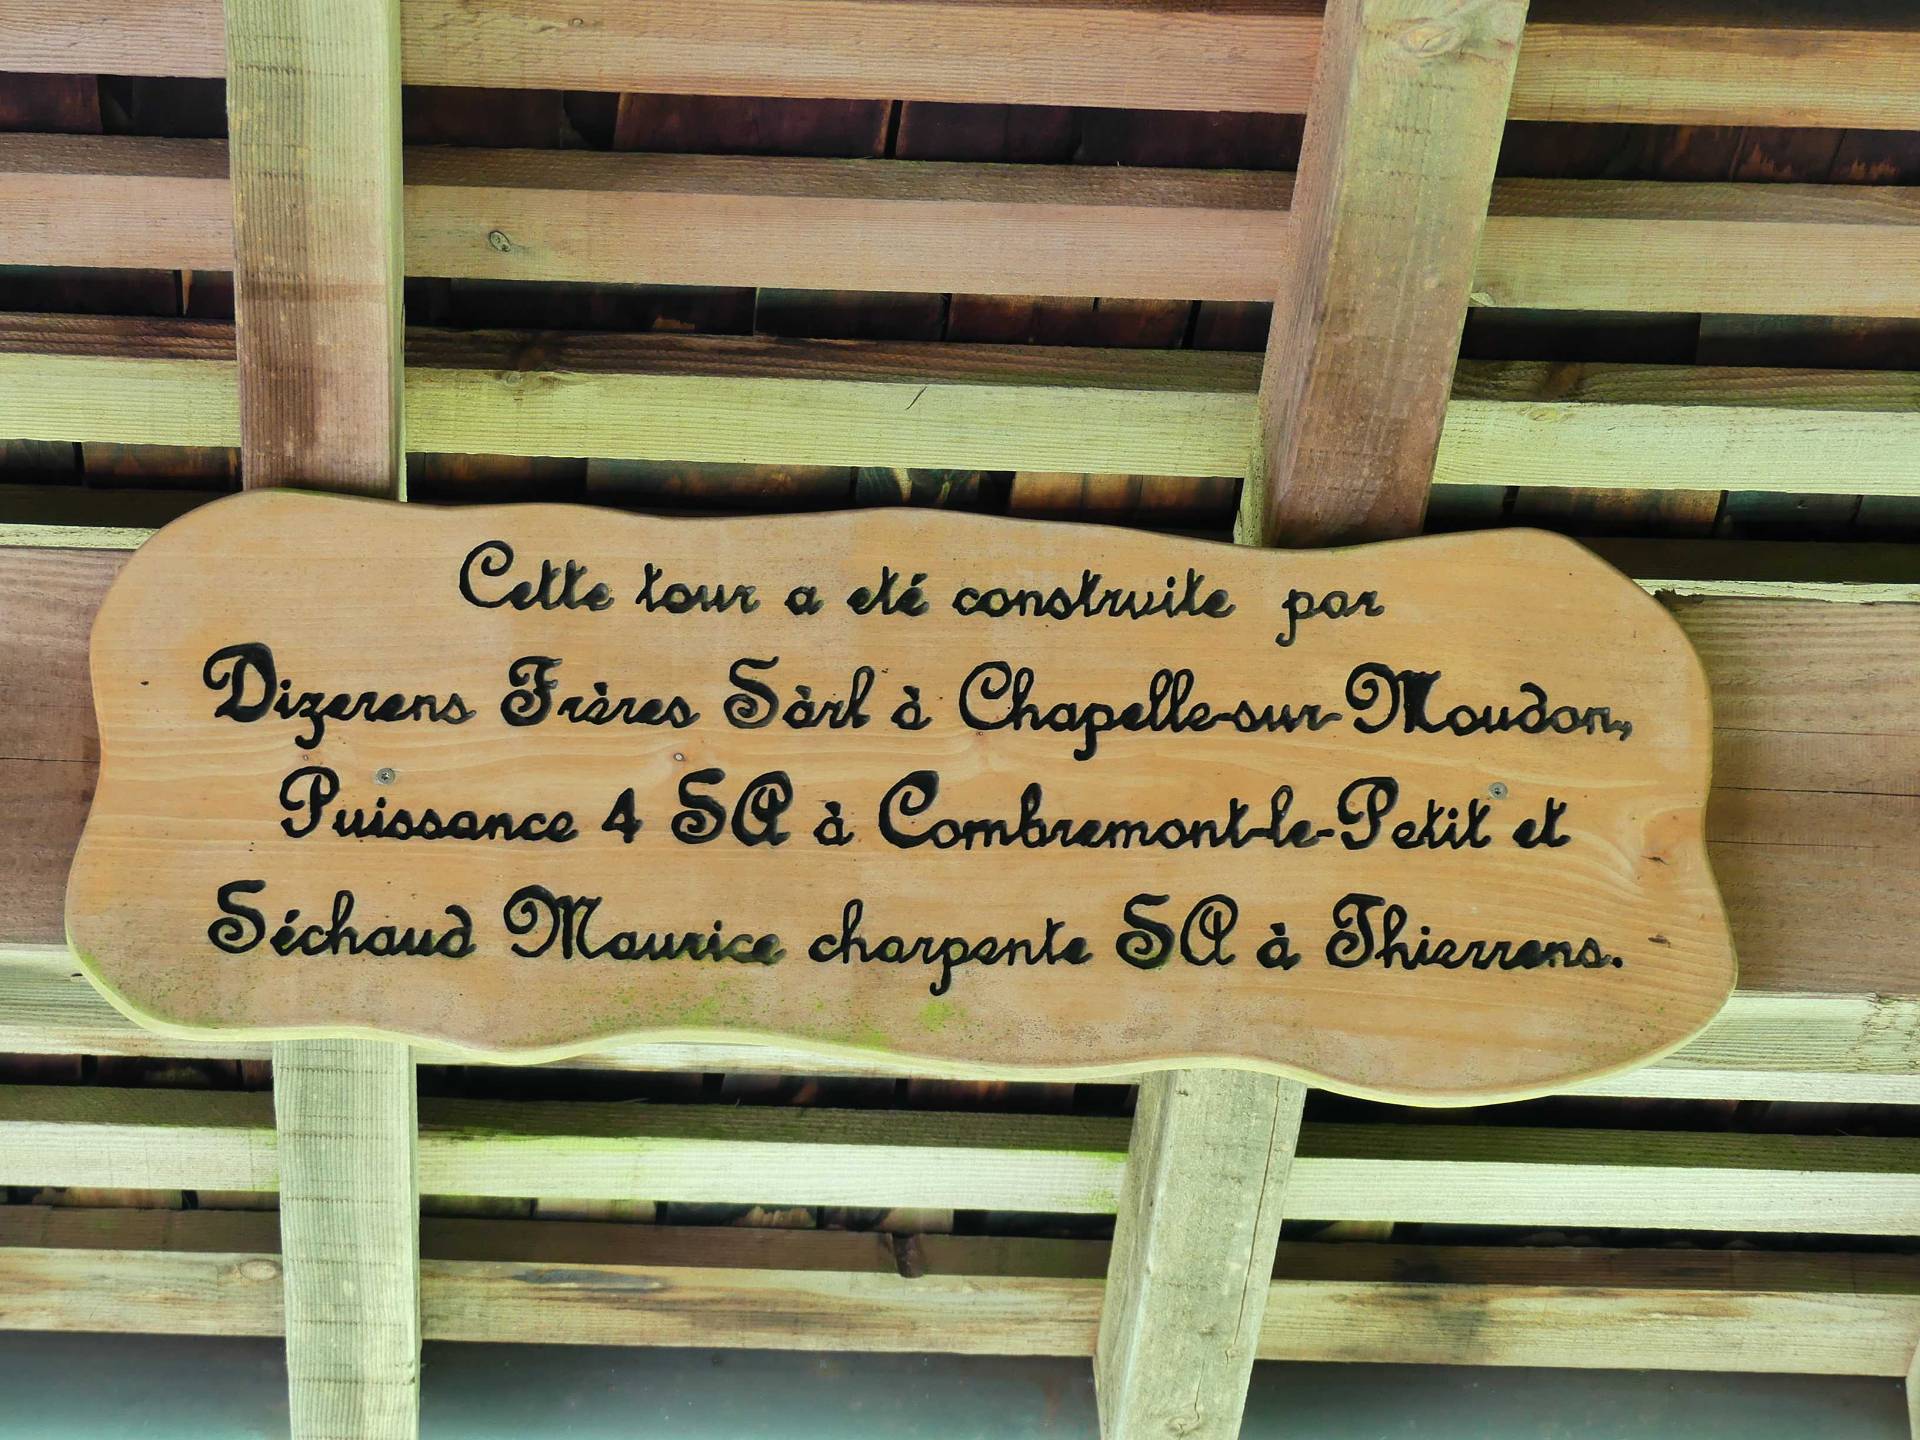 Cette tour a eté construite par
Dizerens Frères Sàrl à Chapelle-sur-Moudon,
Puissance 4 SA à Combremont-le-Petit et
Séchaud Maurice charpente SA à Thierrens.